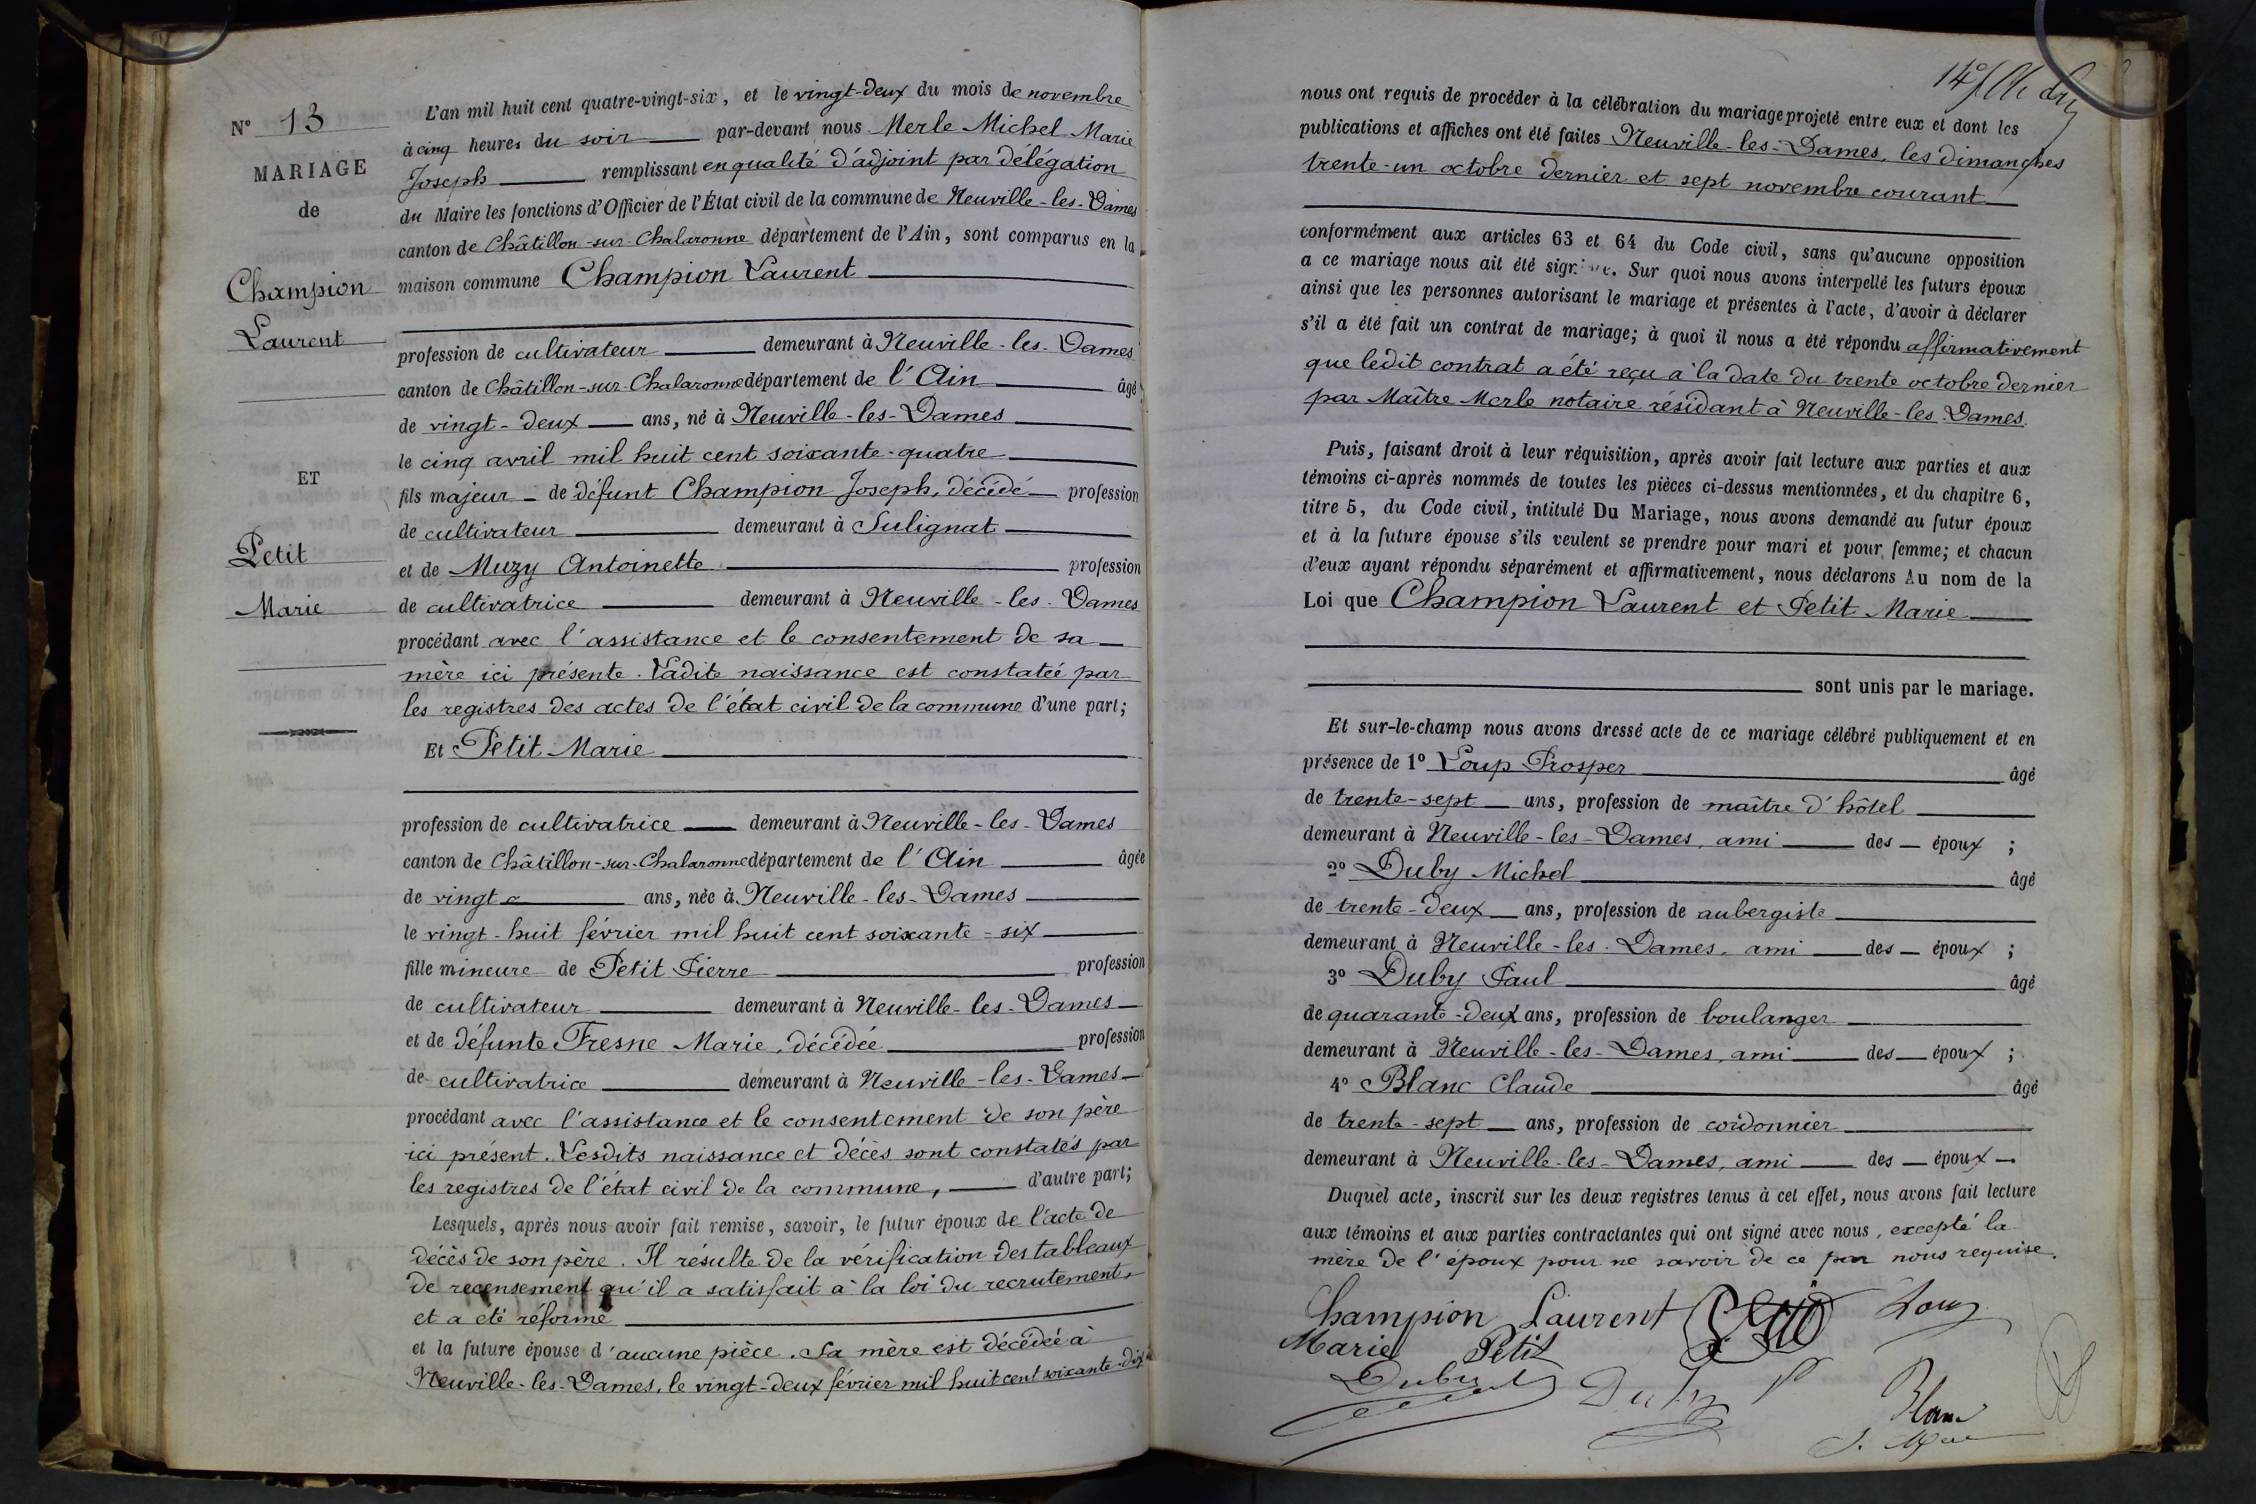 N° 13
MARIAGE
de
Champion
Laurent
ET
Petit
Marie
L'an mil huit cent quatre-vingt-six, et le vingt-deux du mois de novembre
à cinq heures du soir par-devant nous Merle Michel Marie
Joseph remplissant en qualité d'adjoint par délégation
du Maire les fonctions d'Officier de l'État civil de la commune de Neuville-les-Dames
canton de Châtillon-sur-Chalaronne département de l'Ain, sont comparus en la
maison commune Champion Laurent
profession de cultivateur demeurant à Neuville-les-Dames
canton de Châtillon-sur-Chalaronne département de l'Ain âgé
de vingt-deux ans, né à Neuville-les-Dames
le cinq avril mil huit cent soixante-quatre
fils majeur de défunt Champion Joseph, décédé profession
de cultivateur demeurant à Sulignat
et de Muzy Antoinette profession
de cultivatrice demeurant à Neuville-les-Dames
procédant avec l'assistance et le consentement de sa
mère ici présente. Ladite naissance est constatée par
les registres des actes de l'état civil de la commune d'une part;
Et Petit Marie
profession de cultivatrice demeurant à Neuville-les-Dames
canton de Châtillon-sur-Chalaronne département de l'Ain âgée
de vingt ans, née à Neuville-les-Dames
le vingt-huit février mil huit cent soixante-six
fille mineure de Petit Pierre profession
de cultivateur demeurant à Neuville-les-Dames
et de défunte Fresne Marie, décédée profession
de cultivatrice demeurant à Neuville-les-Dames
procédant avec l'assistance et le consentement de son père
ici présent. Lesdits naissance et décès sont constatés par
les registres de l'état civil de la commune, d'autre part;
Lesquels, après nous avoir fait remise, savoir, le futur époux de l'acte de
décès de son père. Il résulte de la vérification des tableaux
de recensement qu'il a satisfait à la loi du recrutement
et a été réformé
et la future épouse d'aucune pièce. Sa mère est décédée à
Neuville-les-Dames, le vingt-deux février mil huit cent soixante-dix
14e
nous ont requis de procéder à la célébration du mariage projeté entre eux et dont les
publications et affiches ont été faites Neuville-les-Dames, les dimanches
trente-un octobre dernier et sept novembre courant
conformément aux articles 63 et 64 du Code civil, sans qu'aucune opposition
a ce mariage nous ait été signifiée. Sur quoi nous avons interpellé les futurs époux
ainsi que les personnes autorisant le mariage et présentes à l'acte, d'avoir à déclarer
s'il a été fait un contrat de mariage; à quoi il nous a été répondu affirmativement
que ledit contrat a été reçu à la date du trente octobre dernier
par Maître Merle notaire résidant à Neuville-les-Dames.
Puis, faisant droit à leur réquisition, après avoir fait lecture aux parties et aux
témoins ci-après nommés de toutes les pièces ci-dessus mentionnées, et du chapitre 6,
titre 5, du Code civil, intitulé Du Mariage, nous avons demandé au futur époux
et à la future épouse s'ils veulent se prendre pour mari et pour femme; et chacun
d'eux ayant répondu séparément et affirmativement, nous déclarons Au nom de la
Loi que Champion Laurent et Petit Marie
sont unis par le mariage.
Et sur-le-champ nous avons dressé acte de ce mariage célébré publiquement et en
présence de 1° Loup Prosper âgé
de trente-sept ans, profession de maître d'hôtel
demeurant à Neuville-les-Dames, ami des époux ;
2° Duby Michel âgé
de trente-deux ans, profession de aubergiste
demeurant à Neuville-les-Dames, ami des époux ;
3° Duby Paul âgé
de quarante-deux ans, profession de boulanger
demeurant à Neuville-les-Dames, ami des époux ;
4° Blanc Claude âgé
de trente-sept ans, profession de cordonnier
demeurant à Neuville-les-Dames, ami des époux.
Duquel acte, inscrit sur les deux registres tenus à cet effet, nous avons fait lecture
aux témoins et aux parties contractantes qui ont signé avec nous, excepté la
mère de l'époux pour ne savoir de ce par nous requise.
Champion Laurent Loup
Marie Petit
Duby Duby P
Blanc